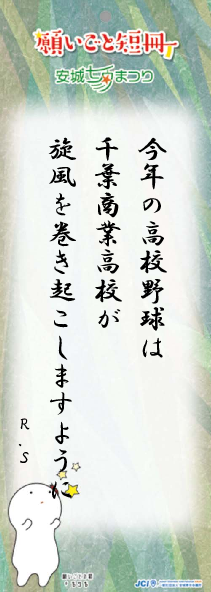 願いごと短冊
安城七夕まつり
今年の高校野球は
千葉商業高校が
旋風を巻き起こしますように
R.S
JCI